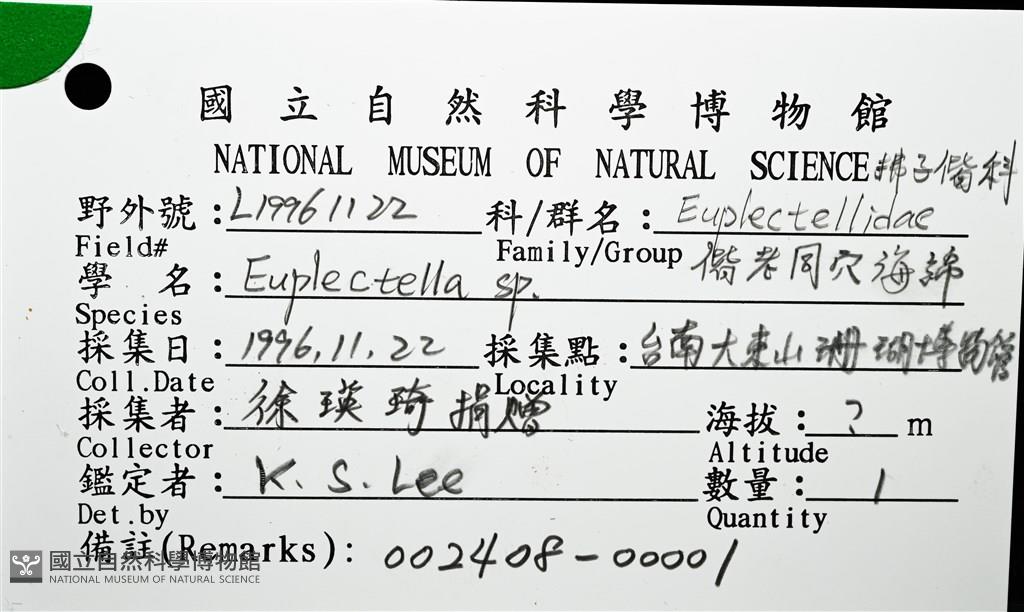 國立自然科學博物館
NATIONAL MUSEUM OF NATURAL SCIENCE 拂子偕科
野外號：L1996 11 22 科/群名：Euplectellidae
Field# Family/Group 偕老同穴海綿
學 名：Euplectella sp.
Species
採集日：1996.11.22 採集點：台南大東山珊瑚博物館
Coll.Date Locality
採集者：徐瑛琦捐贈 海拔：? m
Collector Altitude
鑑定者：K.S.Lee 數量：1
Det.by Quantity
備註(Remarks)：002408-00001
國立自然科學博物館
NATIONAL MUSEUM OF NATURAL SCIENCE